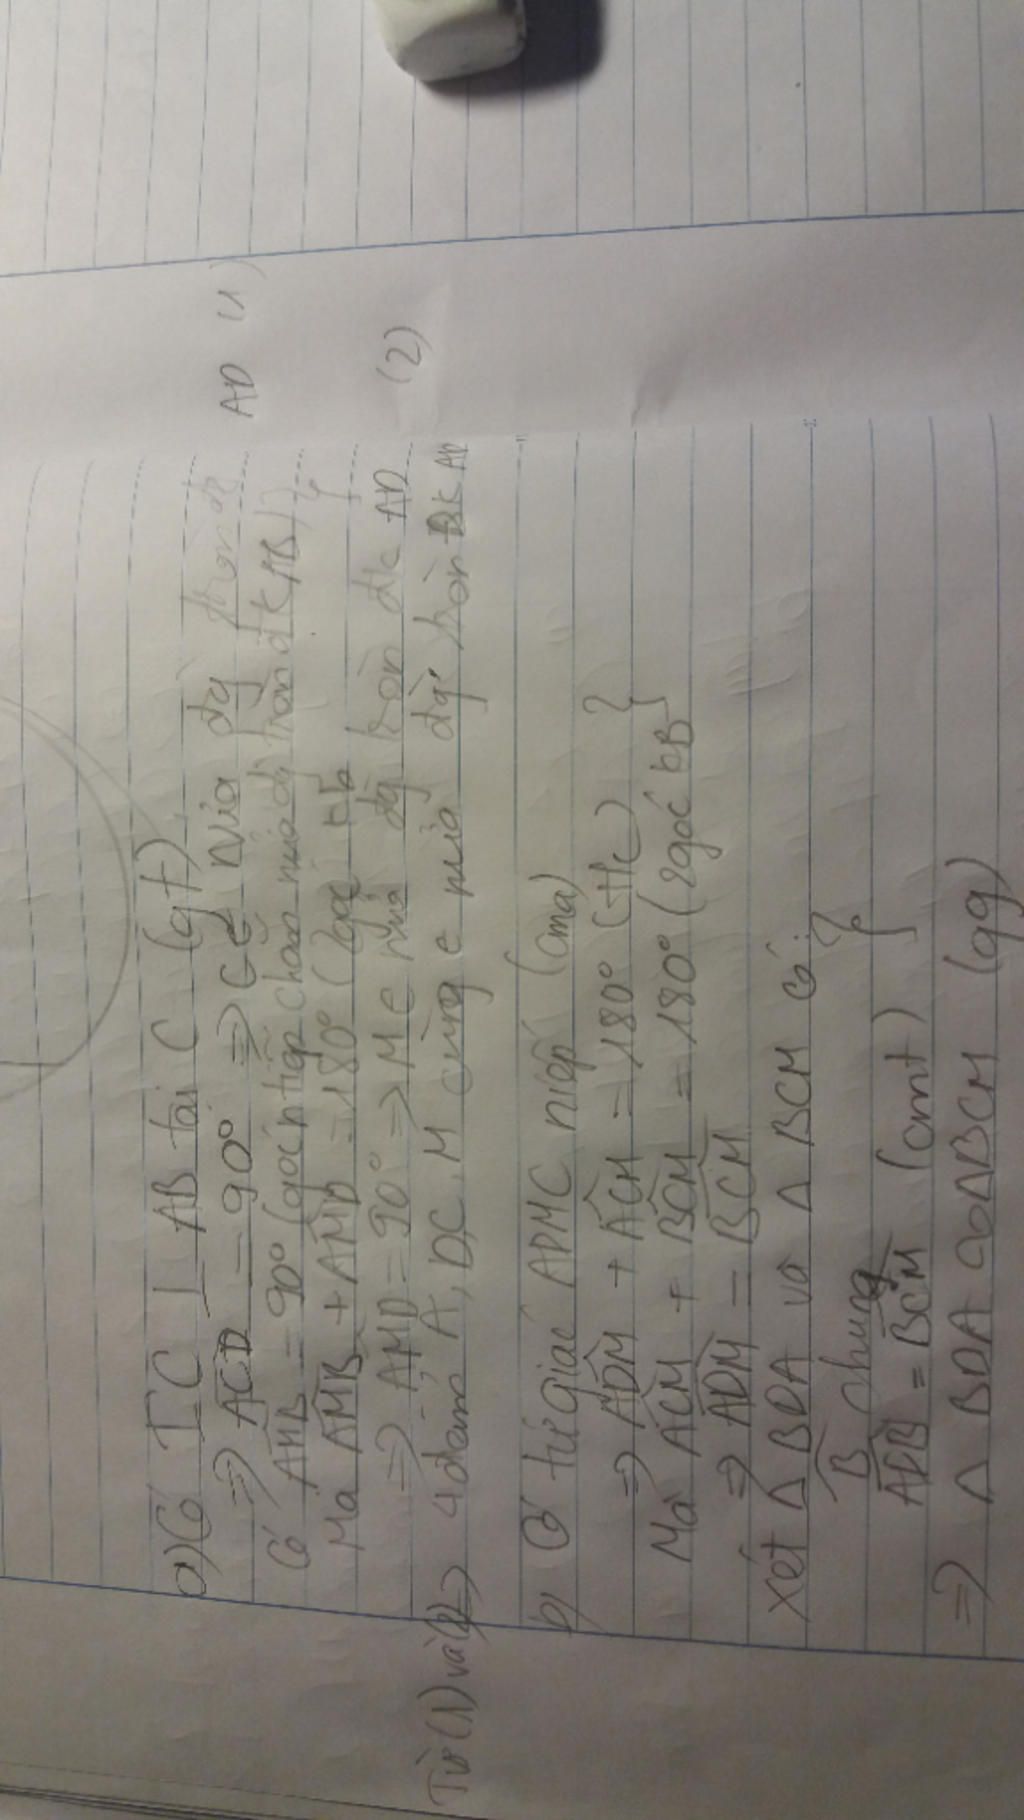 a) Có IC ⊥ AB tại C (gt)
=> ACD = 90° => C ∈ Nửa đg tròn đk AD (1)
Có AMB = 90° (góc ntiếp chắn nửa đg tròn đk AB)
Mà AMB + AMD = 180° (2góc kb
=> AMD = 90° => M ∈ nửa đg tròn đk AD (2)
Từ (1) và (2) => 4 điểm A, D, C, M cùng ∈ nửa đg tròn đk AD
b) Có tứ giác APMC ntiếp (cma)
=> ADM + ACM = 180° (t/c)
Mà ACM + BCM = 180° (2góc kB
=> ADM = BCM
Xét Δ BDA và Δ BCM có:
B chung
ADB = BCM (cmt)
=> Δ BDA ∽ Δ BCM (gg)